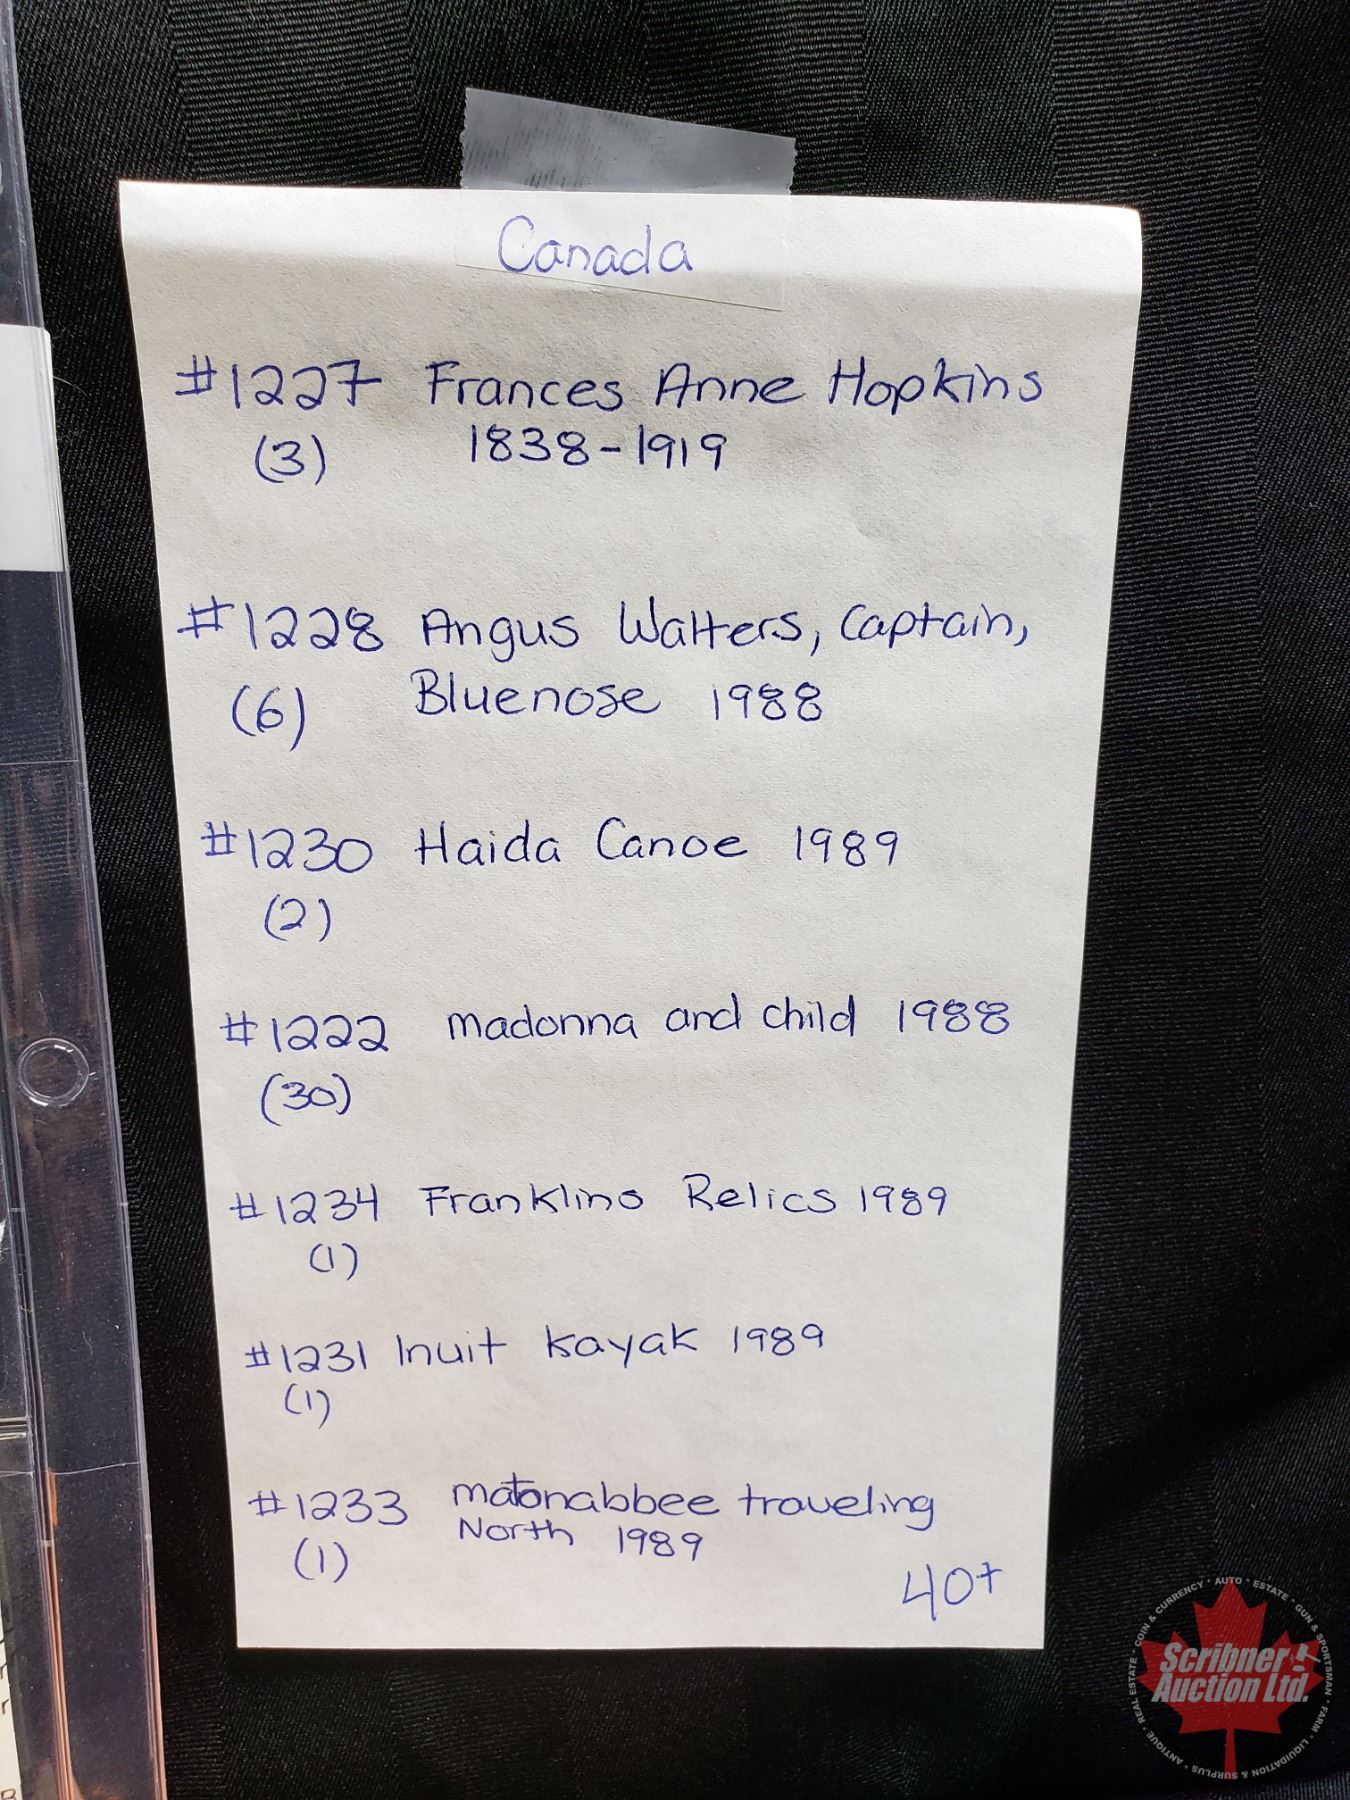 Canada
#1227 Frances Anne Hopkins
(3) 1838-1919
#1228 Angus Walters, Captain,
(6) Bluenose 1988
#1230 Haida Canoe 1989
(2)
#1222 madonna and child 1988
(30)
#1234 Franklins Relics 1989
(1)
#1231 Inuit Kayak 1989
(1)
#1233 matonabbee traveling
North 1989
(1)
40+
Scribner
Auction Ltd.
COIN & CURRENCY · AUTO · ESTATE · GUN & SPORTSMAN · FARM · LIQUIDATION & SURPLUS · ANTIQUE · REAL ESTATE ·